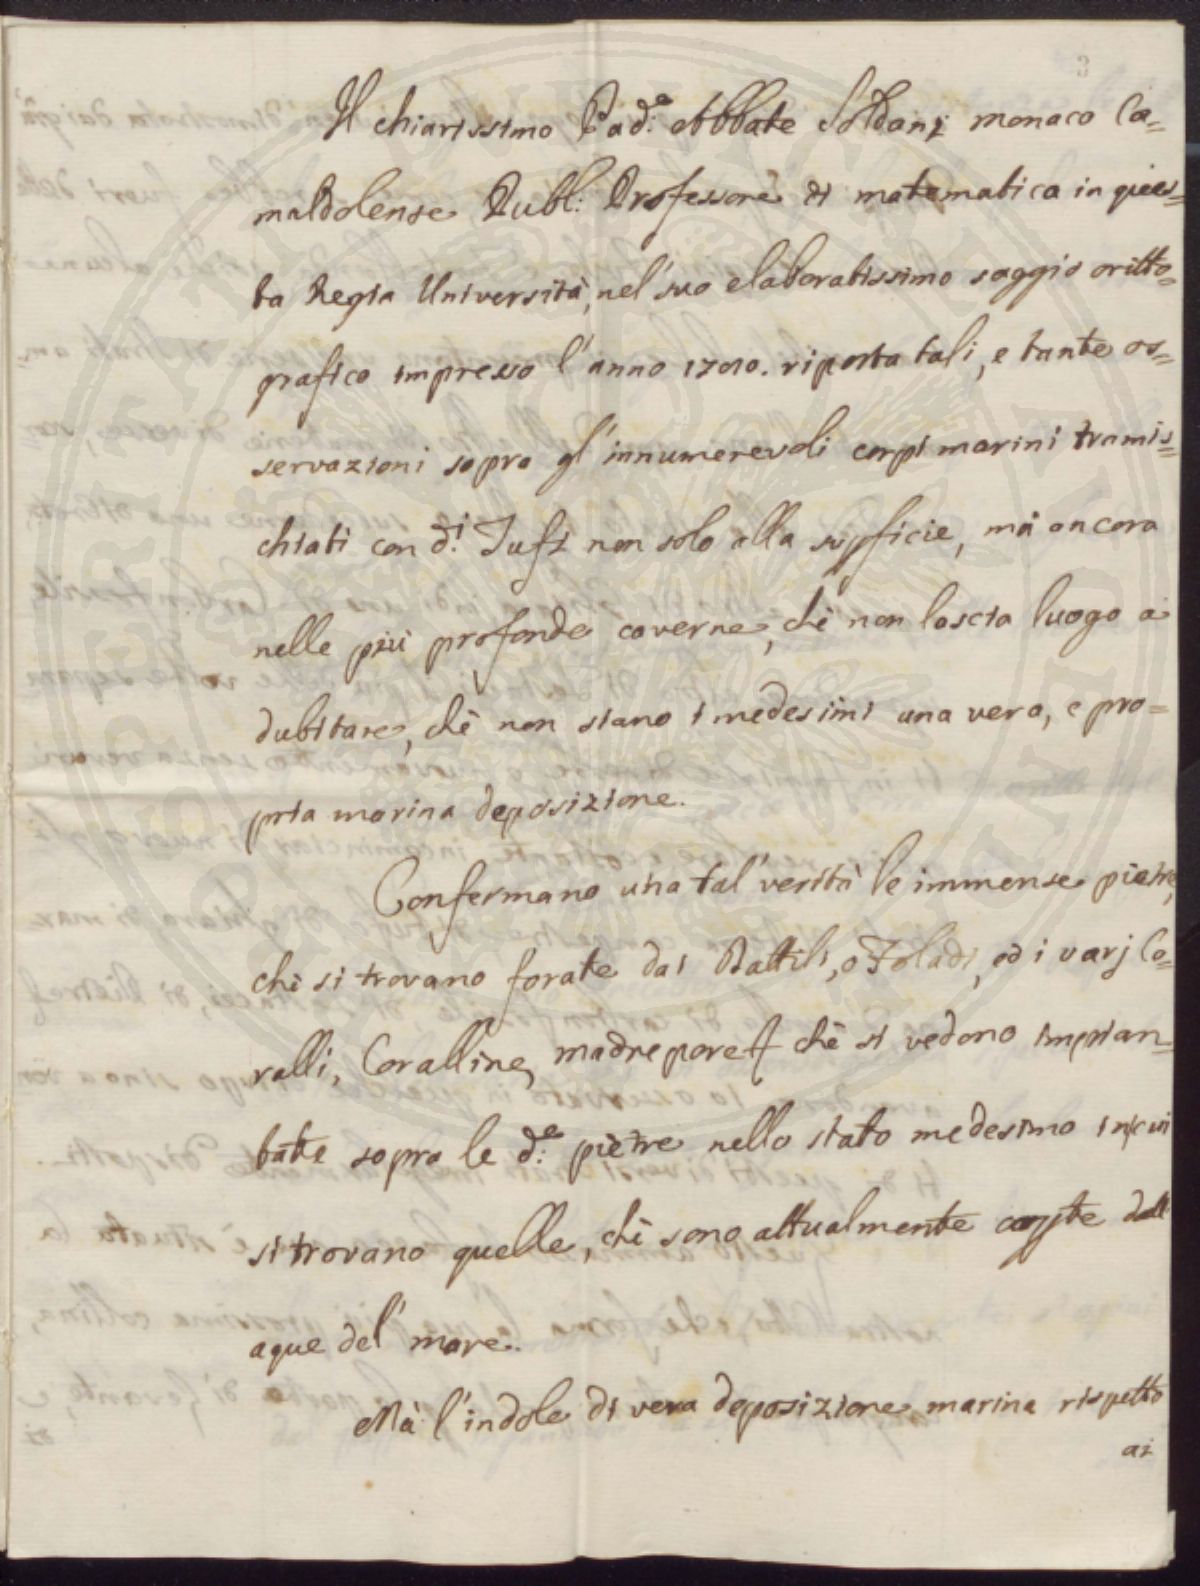 3
Il chiarissimo Pad.e Abbate Soldani monaco Ca=
maldolense Publ: Professore di matematica in ques=
ta Regia Università, nel' suo elaboratissimo saggio oritto=
grafico impresso l' anno 1780. riporta tali, e tante os=
servazioni sopra gl' innumerevoli corpi marini tramis=
chiati con d.i Tufi non solo alla supficie, mà ancora
nelle più profonde caverne, chè non lascia luogo a
dubitare, chè non siano i medesimi una vera, e pro=
pria marina deposizione.
Confermano una tal' verità le immense pietre,
chè si trovano forate dai Dattili, o Foladi, ed i varj Co=
ralli, Coralline, madrepore chè si vedono impian=
tate sopra le d.e pietre nello stato medesimo in cui
si trovano quelle, chè sono attualmente copte dall
aque del' mare.
Mà l' indole di vera deposizione marina rispetto
ai